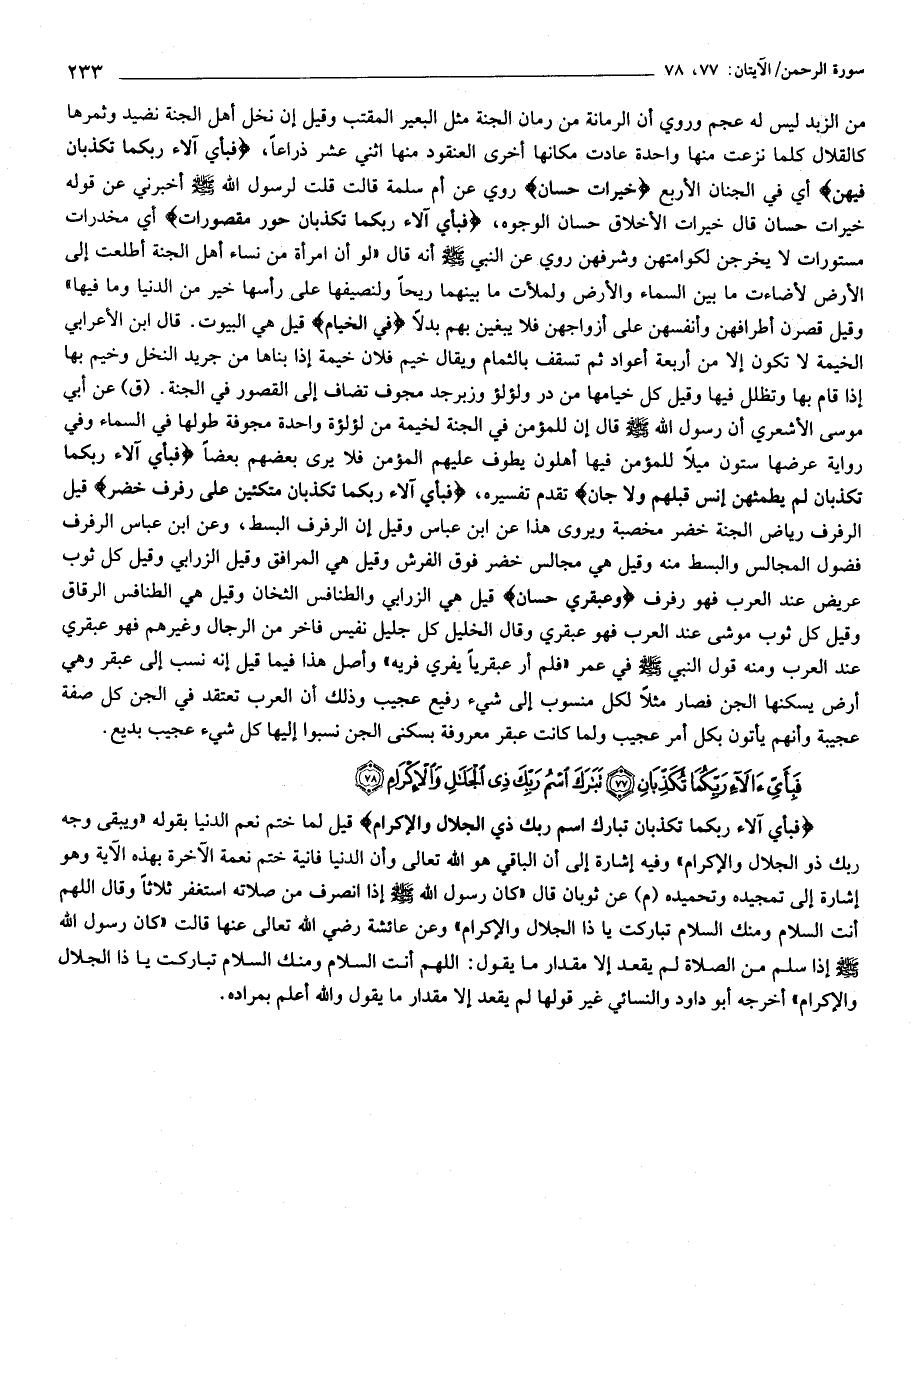 سورة الرحمن/ الآيتان: ٧٧، ٧٨ ٢٣٣
من الزبد ليس له عجم وروي أن الرمانة من رمان الجنة مثل البعير المقتب وقيل إن نخل أهل الجنة نضيد وثمرها
كالقلال كلما نزعت منها واحدة عادت مكانها أخرى العنقود منها اثني عشر ذراعاً، ﴿فبأي آلاء ربكما تكذبان
فيهن﴾ أي في الجنان الأربع ﴿خيرات حسان﴾ روي عن أم سلمة قالت قلت لرسول الله ﷺ أخبرني عن قوله
خيرات حسان قال خيرات الأخلاق حسان الوجوه، ﴿فبأي آلاء ربكما تكذبان حور مقصورات﴾ أي مخدرات
مستورات لا يخرجن لكوامتهن وشرفهن روي عن النبي ﷺ أنه قال «لو أن امرأة من نساء أهل الجنة أطلعت إلى
الأرض لأضاءت ما بين السماء والأرض ولملأت ما بينهما ريحاً ولنصيفها على رأسها خير من الدنيا وما فيها»
وقيل قصرن أطرافهن وأنفسهن على أزواجهن فلا يبغين بهم بدلاً ﴿في الخيام﴾ قيل هي البيوت. قال ابن الأعرابي
الخيمة لا تكون إلا من أربعة أعواد ثم تسقف بالثمام ويقال خيم فلان خيمة إذا بناها من جريد النخل وخيم بها
إذا قام بها وتظلل فيها وقيل كل خيامها من در ولؤلؤ وزبرجد مجوف تضاف إلى القصور في الجنة. (ق) عن أبي
موسى الأشعري أن رسول الله ﷺ قال إن للمؤمن في الجنة لخيمة من لؤلؤة واحدة مجوفة طولها في السماء وفي
رواية عرضها ستون ميلاً للمؤمن فيها أهلون يطوف عليهم المؤمن فلا يرى بعضهم بعضاً ﴿فبأي آلاء ربكما
تكذبان لم يطمثهن إنس قبلهم ولا جان﴾ تقدم تفسيره، ﴿فبأي آلاء ربكما تكذبان متكئين على رفرف خضر﴾ قيل
الرفرف رياض الجنة خضر مخصبة ويروى هذا عن ابن عباس وقيل إن الرفرف البسط، وعن ابن عباس الرفرف
فضول المجالس والبسط منه وقيل هي مجالس خضر فوق الفرش وقيل هي المرافق وقيل الزرابي وقيل كل ثوب
عريض عند العرب فهو رفرف ﴿وعبقري حسان﴾ قيل هي الزرابي والطنافس الثخان وقيل هي الطنافس الرقاق
وقيل كل ثوب موشى عند العرب فهو عبقري وقال الخليل كل جليل نفيس فاخر من الرجال وغيرهم فهو عبقري
عند العرب ومنه قول النبي ﷺ في عمر «فلم أر عبقرياً يفري فريه» وأصل هذا فيما قيل إنه نسب إلى عبقر وهي
أرض يسكنها الجن فصار مثلاً لكل منسوب إلى شيء رفيع عجيب وذلك أن العرب تعتقد في الجن كل صفة
عجيبة وأنهم يأتون بكل أمر عجيب ولما كانت عبقر معروفة بسكنى الجن نسبوا إليها كل شيء عجيب بديع.
فَبِأَيِّ ءَالَآءِ رَبِّكُمَا تُكَذِّبَانِ ﴿٧٧﴾ تَبَٰرَكَ ٱسْمُ رَبِّكَ ذِى ٱلْجَلَٰلِ وَٱلْإِكْرَامِ ﴿٧٨﴾
﴿فبأي آلاء ربكما تكذبان تبارك اسم ربك ذي الجلال والإكرام﴾ قيل لما ختم نعم الدنيا بقوله «ويبقى وجه
ربك ذو الجلال والإكرام» وفيه إشارة إلى أن الباقي هو الله تعالى وأن الدنيا فانية ختم نعمة الآخرة بهذه الآية وهو
إشارة إلى تمجيده وتحميده (م) عن ثوبان قال «كان رسول الله ﷺ إذا انصرف من صلاته استغفر ثلاثاً وقال اللهم
أنت السلام ومنك السلام تباركت يا ذا الجلال والإكرام» وعن عائشة رضي الله تعالى عنها قالت «كان رسول الله
ﷺ إذا سلم من الصلاة لم يقعد إلا مقدار ما يقول: اللهم أنت السلام ومنك السلام تباركت يا ذا الجلال
والإكرام» أخرجه أبو داود والنسائي غير قولها لم يقعد إلا مقدار ما يقول والله أعلم بمراده.